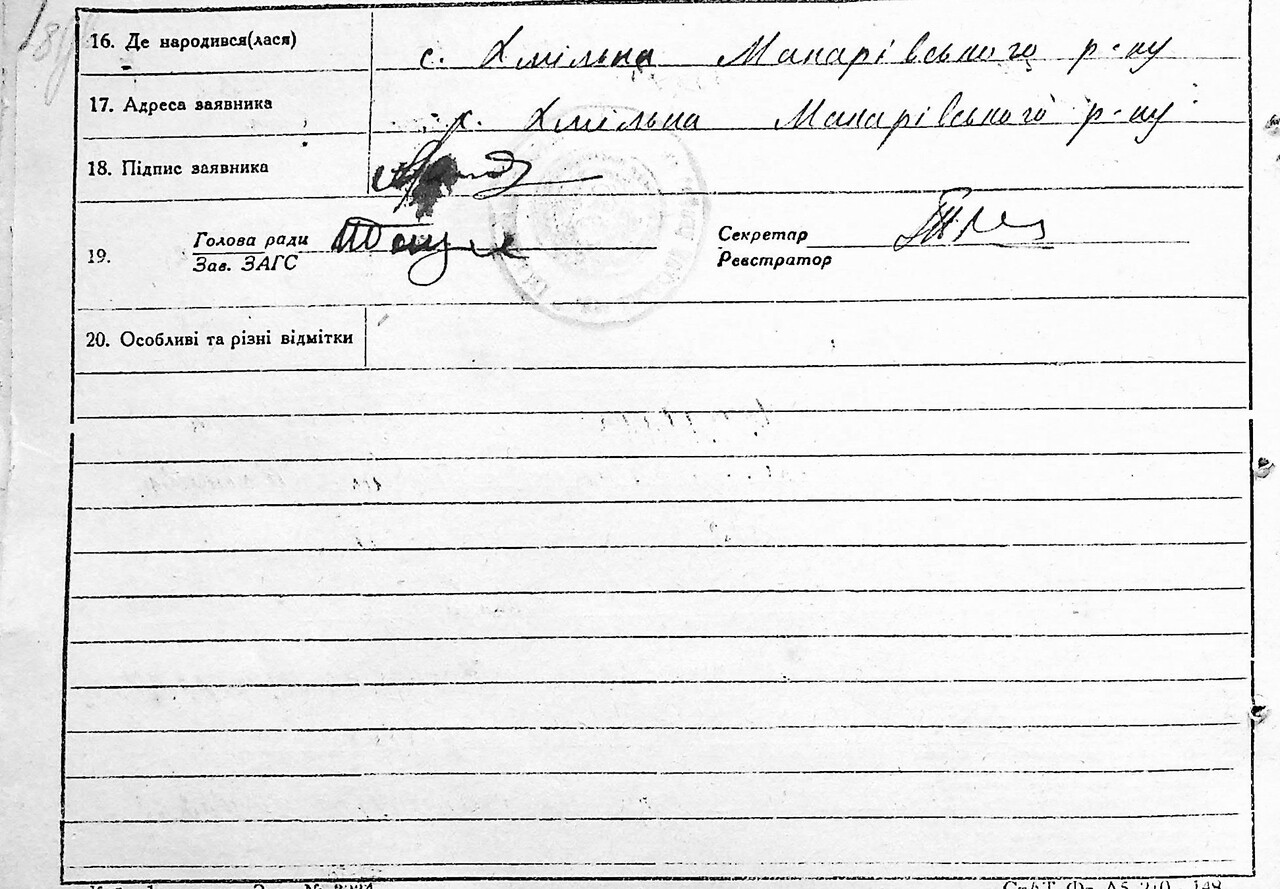 16. Де народився(лася) с. Хмільна Макарівського р-ну
17. Адреса заявника с. Хмільна Макарівського р-ну
18. Підпис заявника
19. Голова ради Секретар
Зав. ЗАГС Реєстратор
20. Особливі та різні відмітки